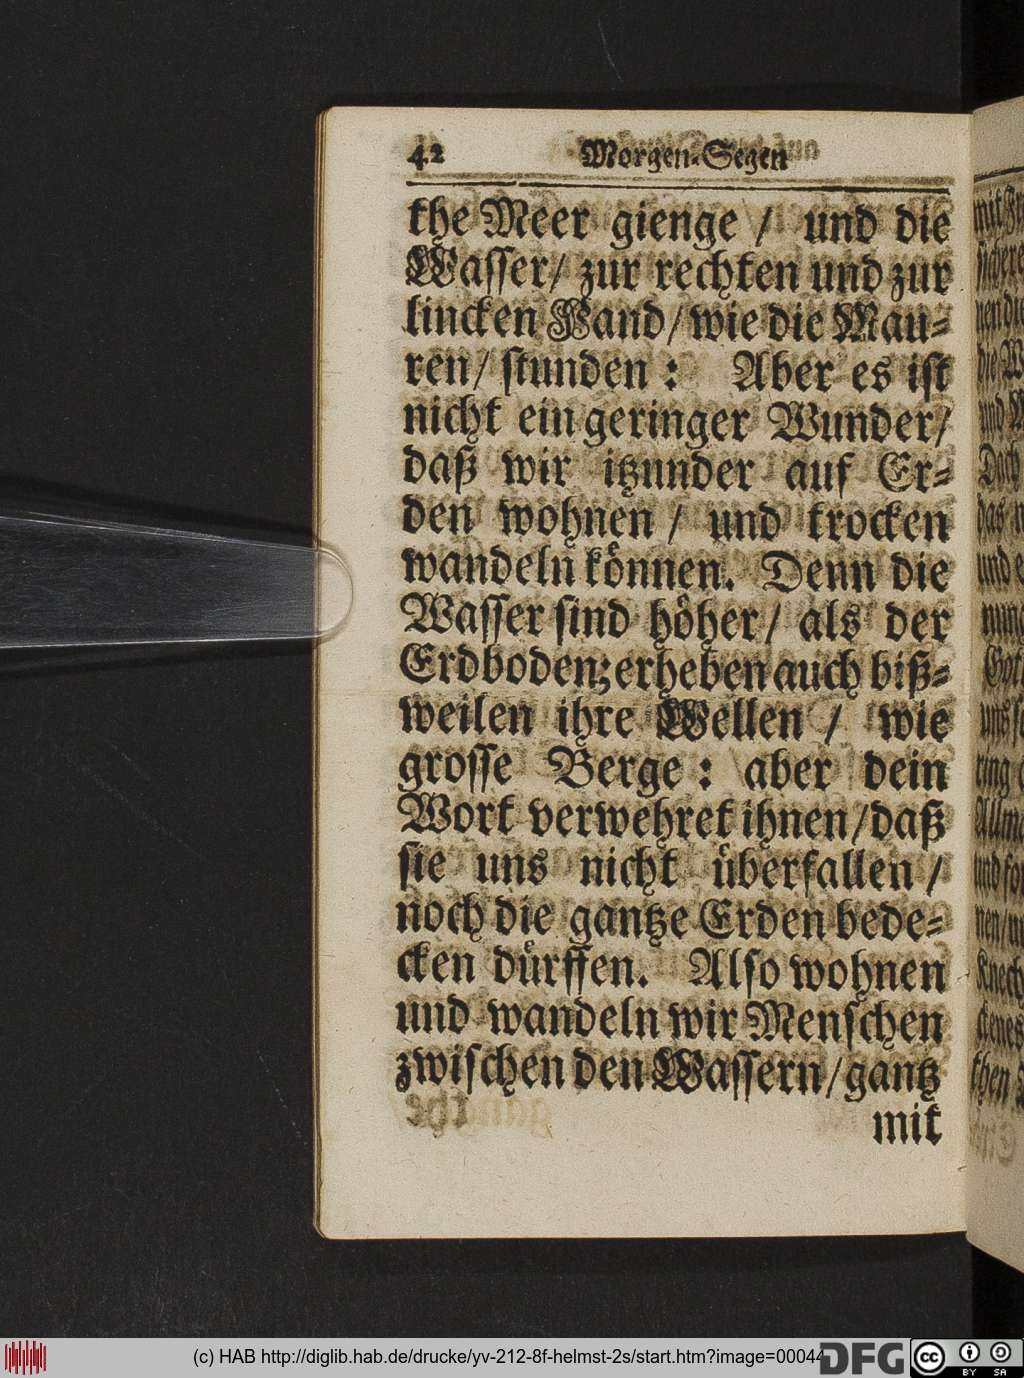 42 Morgen-Segen
the Meer gienge / und die
Wasser / zur rechten und zur
lincken Wand / wie die Mau-
ren / stunden : Aber es ist
nicht ein geringer Wunder /
daß wir itzunder auf Er-
den wohnen / und trocken
wandeln können. Denn die
Wasser sind höher / als der
Erdboden; erheben auch biß-
weilen ihre Wellen / wie
grosse Berge : aber dein
Wort verwehret ihnen / daß
sie uns nicht überfallen /
noch die gantze Erden bede-
cken dürffen. Also wohnen
und wandeln wir Menschen
zwischen den Wassern / gantz
mit
(c) HAB http://diglib.hab.de/drucke/yv-212-8f-helmst-2s/start.htm?image=00044
DFG
cc BY SA